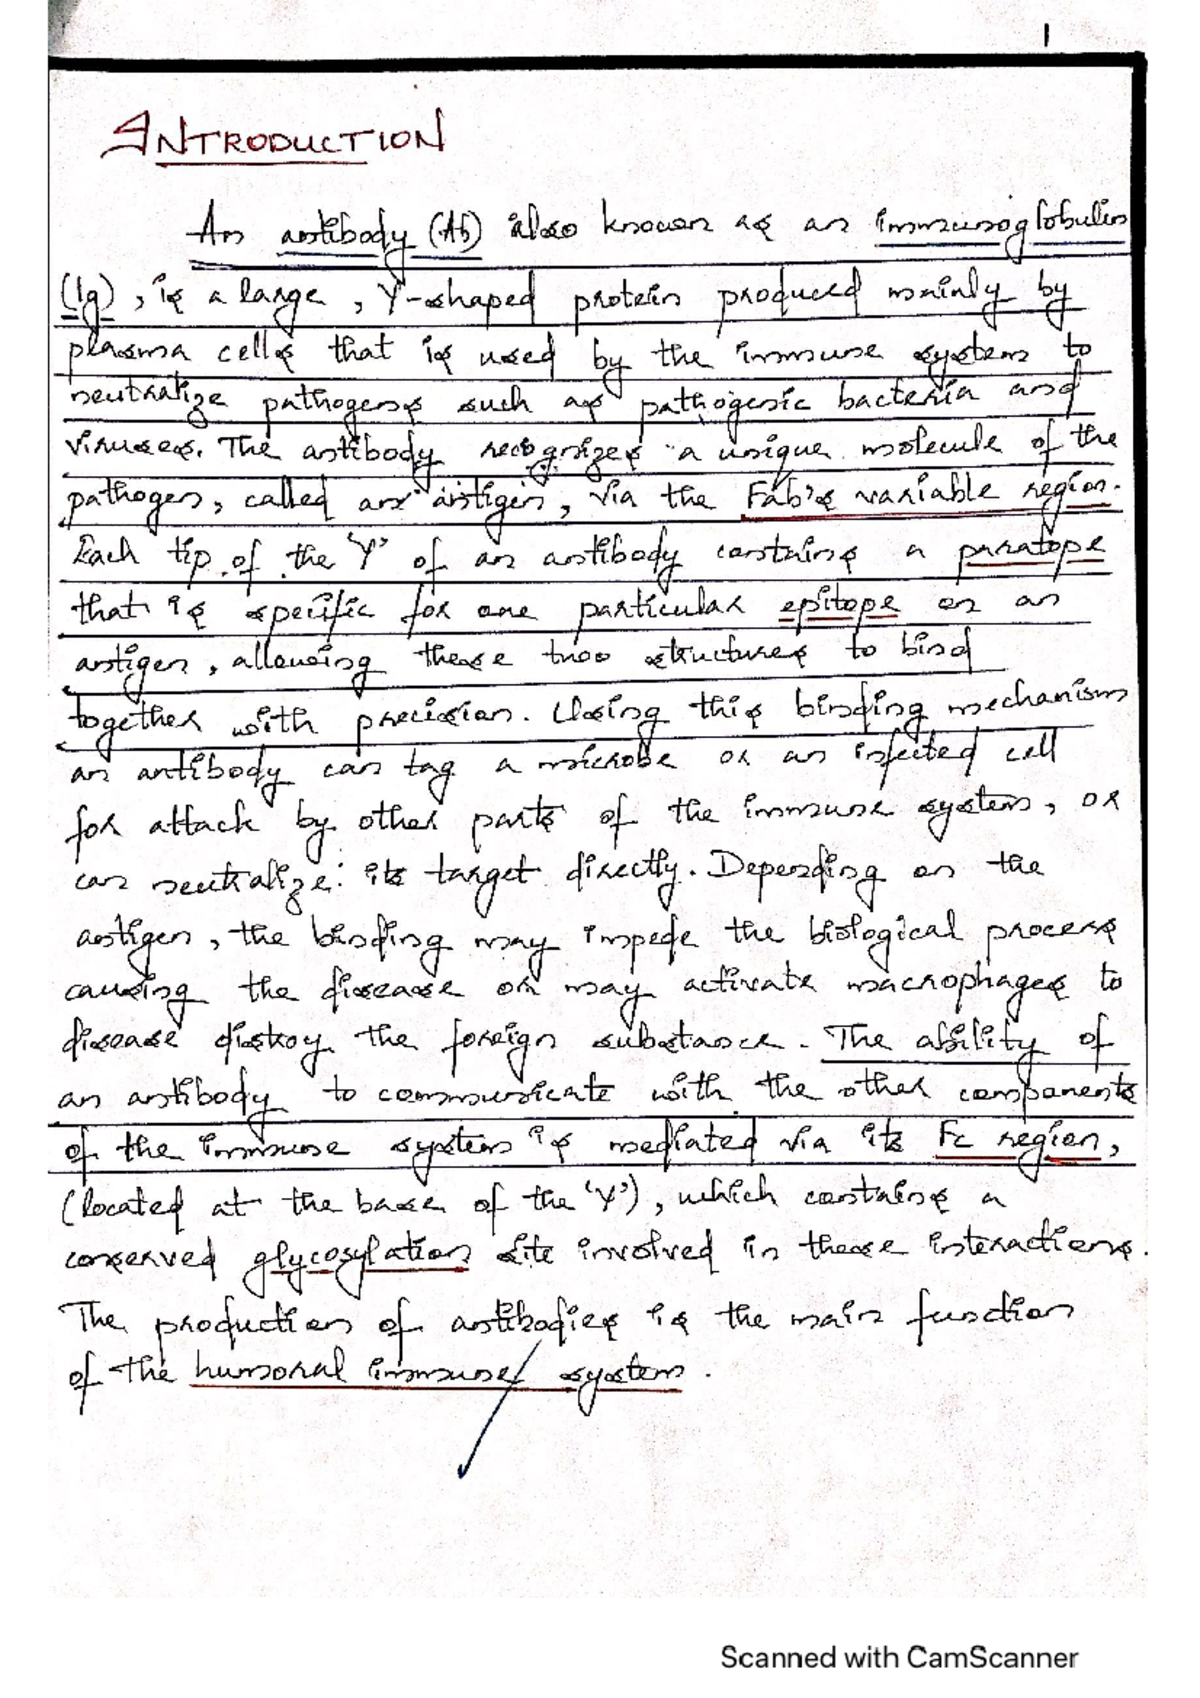 1
INTRODUCTION
An antibody (Ab) also known as an immunoglobulin
(Ig), is a large, Y-shaped protein produced mainly by
plasma cells that is used by the immune system to
neutralize pathogens such as pathogenic bacteria and
viruses. The antibody recognizes a unique molecule of the
pathogen, called an antigen, via the Fab's variable region.
Each tip of the 'Y' of an antibody contains a paratope
that is specific for one particular epitope on an
antigen, allowing these two structures to bind
together with precision. Using this binding mechanism
an antibody can tag a microbe or an infected cell
for attack by other parts of the immune system, or
can neutralize its target directly. Depending on the
antigen, the binding may impede the biological process
causing the disease or may activate macrophages to
disease distroy the foreign substance. The ability of
an antibody to communicate with the other components
of the immune system is mediated via its Fc region,
(located at the base of the 'Y'), which contains a
conserved glycosylation site involved in these interactions.
The production of antibodies is the main function
of the humoral immune system.
Scanned with CamScanner